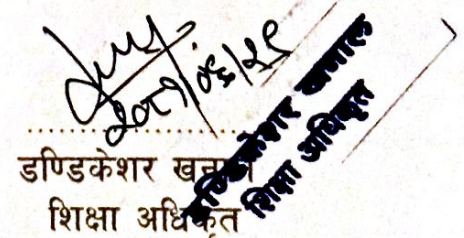 २०८१/०६/२९
डण्डिकेशर खनाल
शिक्षा अधिकृत
डण्डिकेशर खनाल
शिक्षा अधिकृत